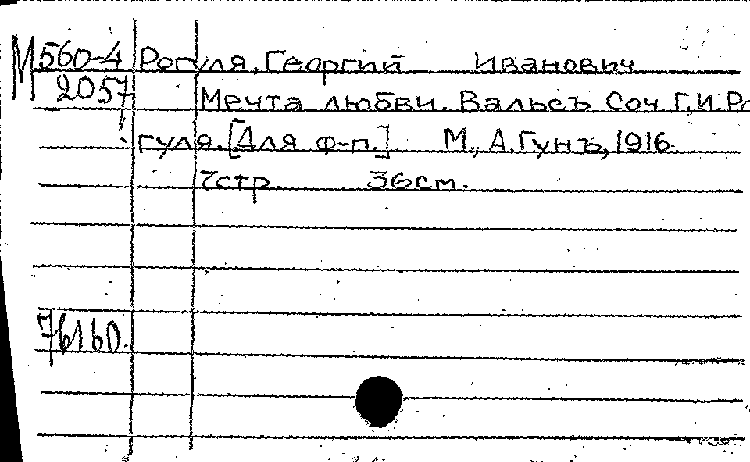 М 560-4 Рогуля, Георгий Иванович
2057 Мечта любви. Вальсъ Соч. Г.И.Ро
гуля. [Для ф-п.] М., А.Гунъ, 1916.
7стр 36см.
76160.